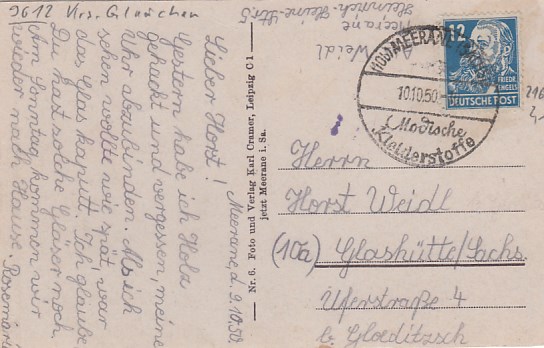 9612 Krs. Glauchau
Meerane, d. 9.10.50.
Lieber Horst!
Gestern habe ich Holz
gehackt und vergessen, meine
Uhr abzubinden. Als ich
sehen wollte wie spät, war
das Glas kaputt. Ich glaube
Du hast solche Gläser noch.
Am Sonntag kommen wir
wieder nach Hause. Rosemarie
Nr. 6. Foto und Verlag Karl Cramer, Leipzig C 1
jetzt Meerane i. Sa.
Weidl
Meerane
Heinrich-Heine-Str. 5
MEERANE
10.10.50
Modische
Kleiderstoffe
12
FRIEDR.
ENGELS
DEUTSCHE POST
216
Herrn
Horst Weidl
(10a) Glashütte/Sachs.
Uferstraße 4
b. Gloeditzsch